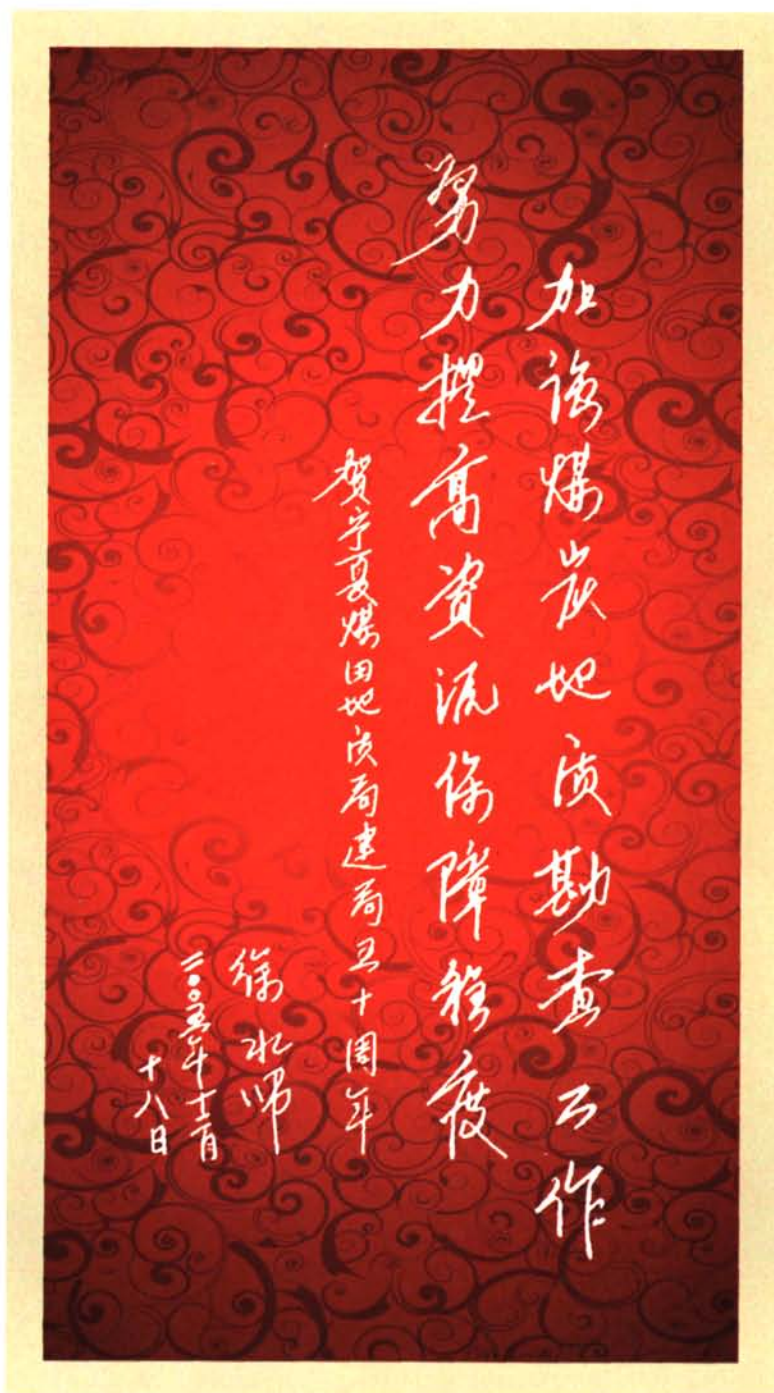 加强煤炭地质勘查工作
努力提高资源保障程度
贺宁夏煤田地质局建局五十周年
徐水师
二〇〇五年十二月
十八日